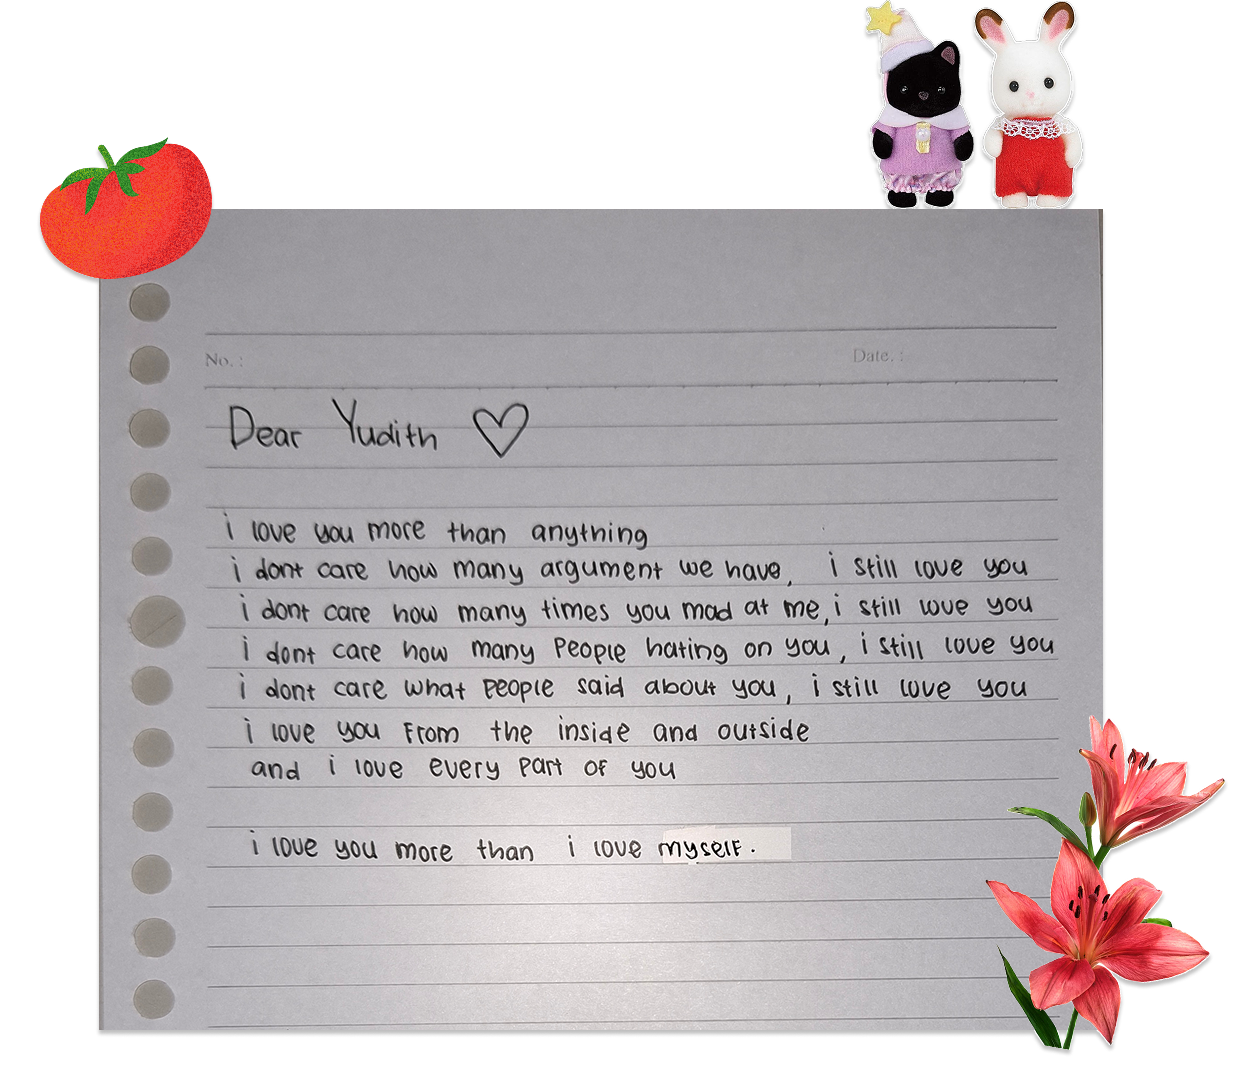 No. :
Date. :
Dear Yudith ♡
i love you more than anything
i dont care how many argument we have, i still love you
i dont care how many times you mad at me, i still love you
i dont care how many people hating on you, i still love you
i dont care what people said about you, i still love you
i love you from the inside and outside
and i love every part of you
i love you more than i love myself.